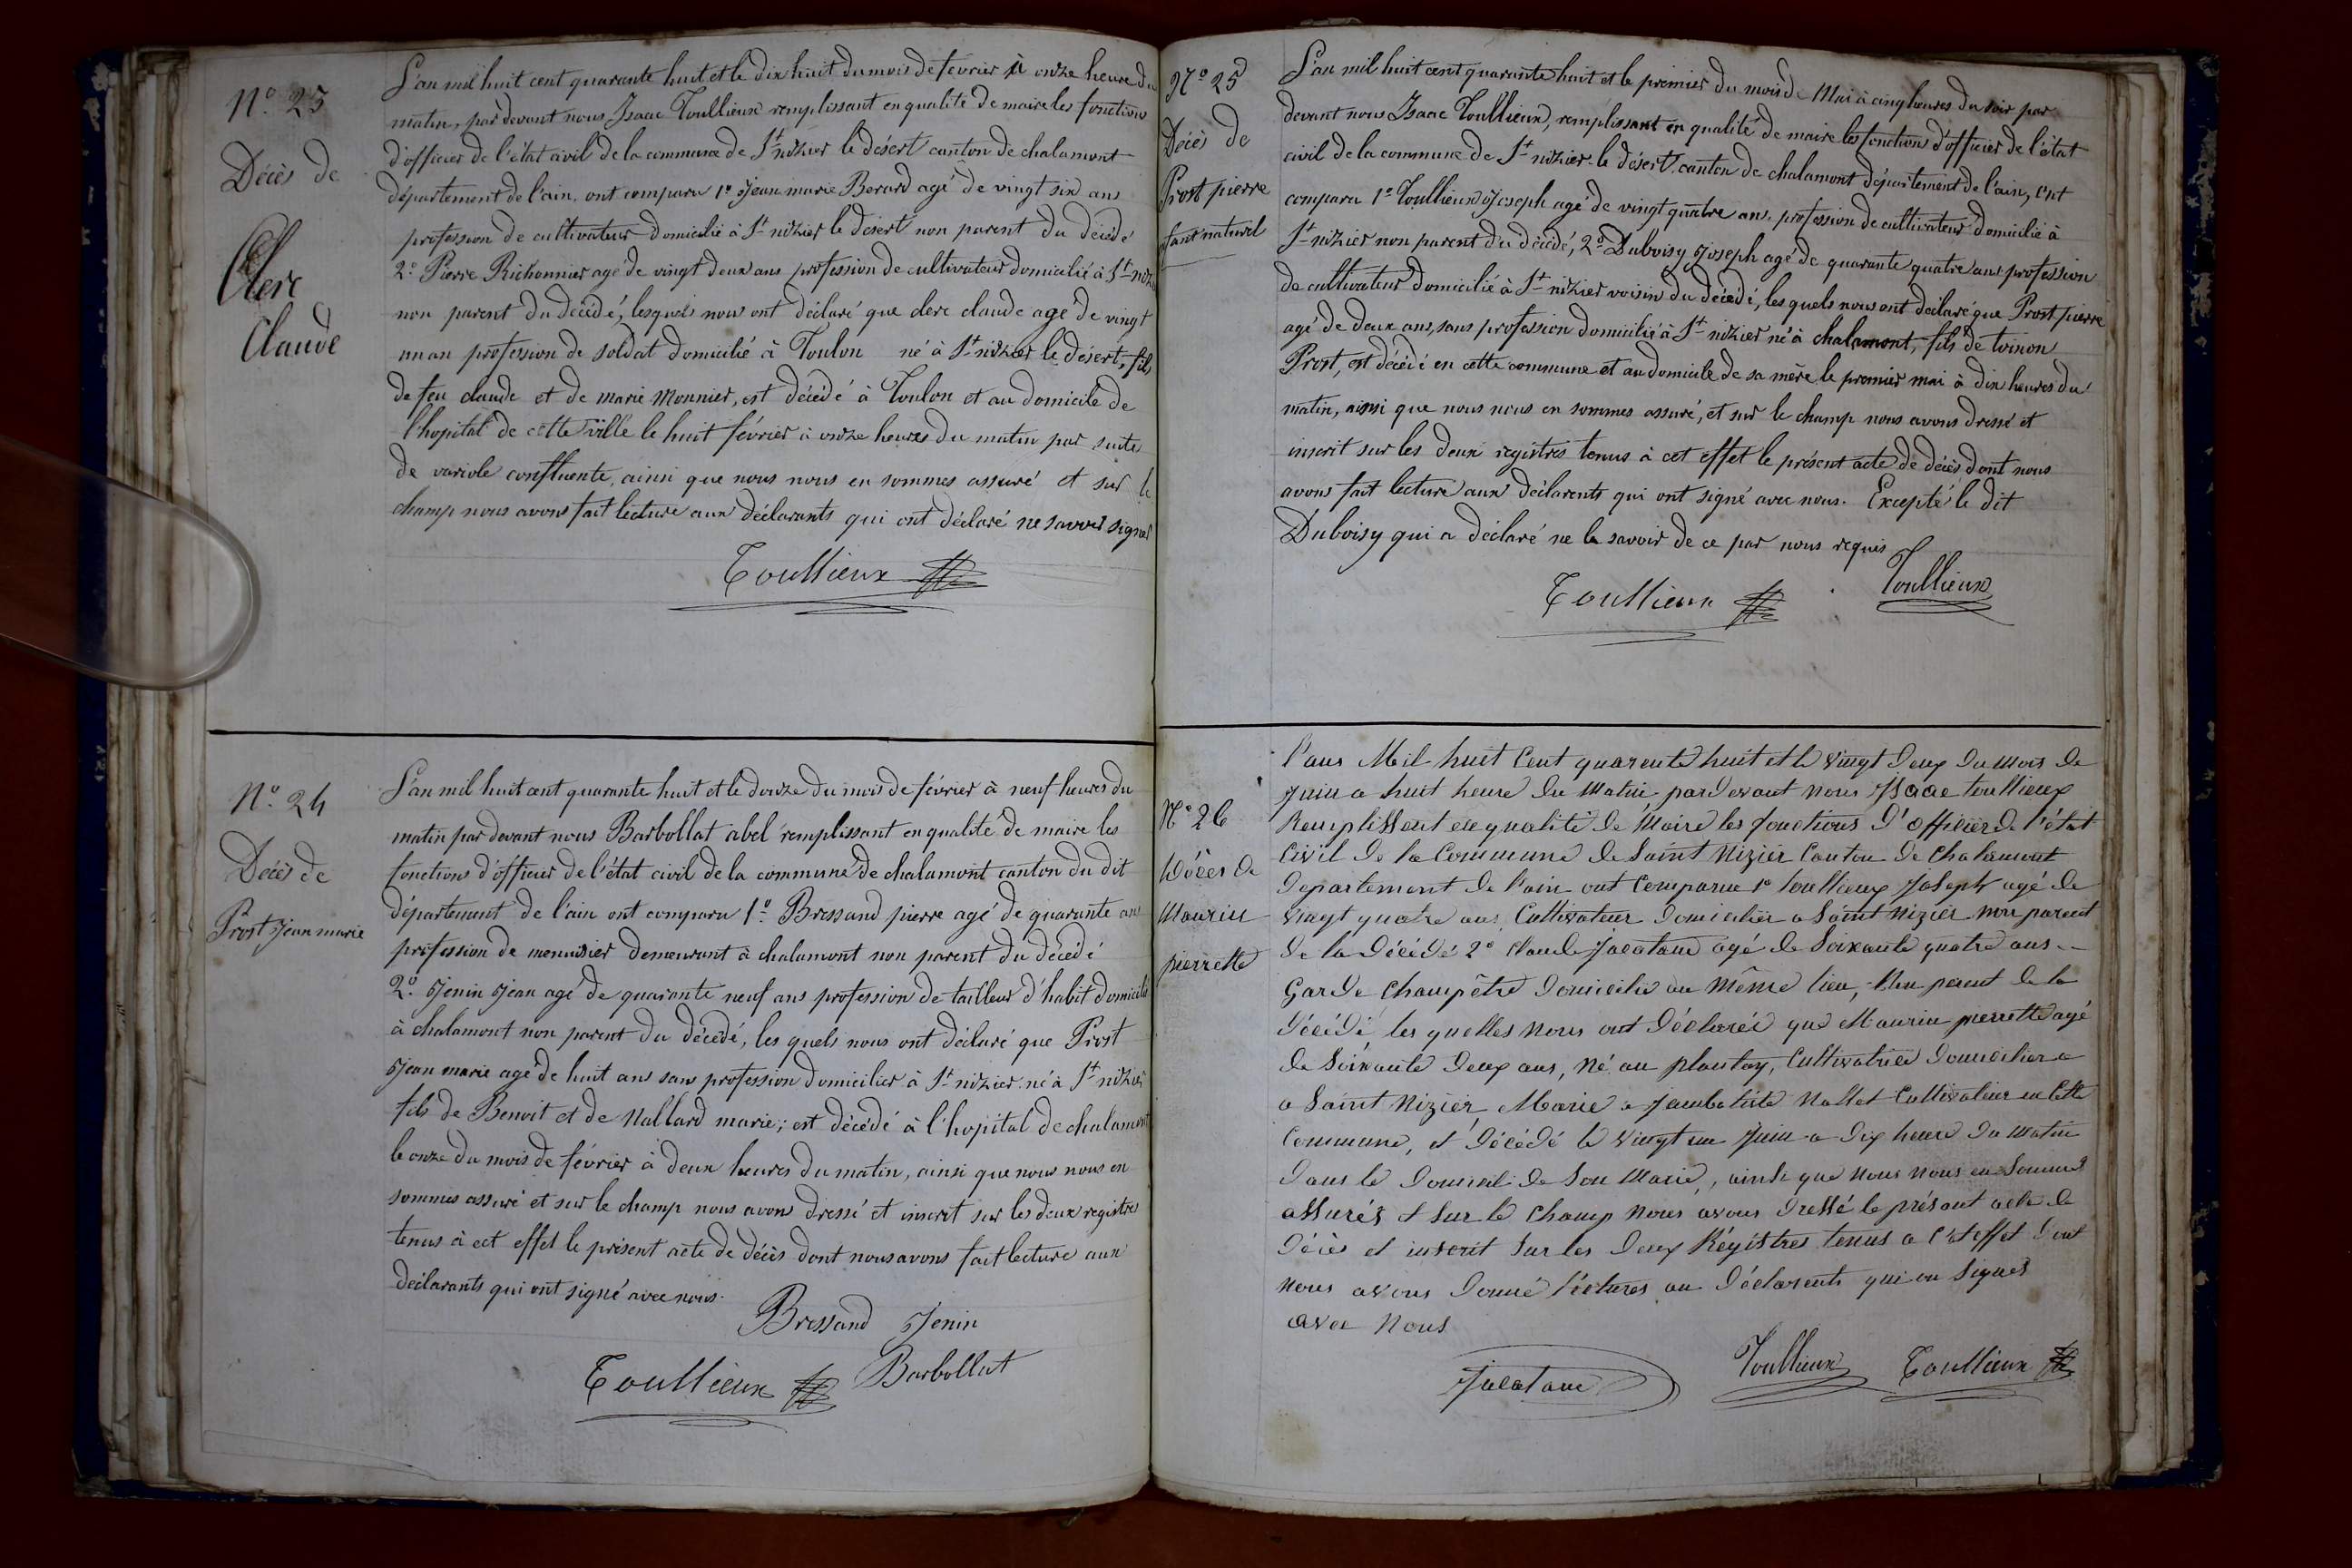 N.º 23
Décès de
Clerc
Claude
L'an mil huit cent quarante huit et le dix huit du mois de février à onze heure du
matin, par devant nous Isaac Toullieux remplissant en qualité de maire les fonctions
d'officier de l'état civil de la commune de St nizier le désert canton de chalamont
département de l'ain, ont comparu 1º Jean marie Berard agé de vingt six ans
profession de cultivateur domicilié à St nizier le désert non parent du décédé
2º Pierre Richonnier agé de vingt deux ans profession de cultivateur domicilié à St niz
non parent du décédé, lesquels nous ont déclaré que clerc claude agé de vingt
un an profession de soldat domicilié à Toulon né à St nizier le désert, fils
de feu claude et de marie Monnier, est décédé à Toulon et au domicile de
l'hopital de cette ville le huit février à onze heures du matin par suite
de variole confluente, ainsi que nous nous en sommes assuré et sur le
champ nous avons fait lecture aux déclarants qui ont déclaré ne savoir signer
Toullieux
N.º 24
Décès de
Prost Jean marie
L'an mil huit cent quarante huit et le douze du mois de février à neuf heures du
matin par devant nous Barbollat abel remplissant en qualité de maire les
fonctions d'officier de l'état civil de la commune de chalamont canton du dit
département de l'ain ont comparu 1º Bressand pierre agé de quarante ans
profession de menuisier demeurant à chalamont non parent du décédé
2º Jenin Jean agé de quarante neuf ans profession de tailleur d'habit domicilié
à chalamont non parent du décédé, les quels nous ont déclaré que Prost
Jean marie agé de huit ans sans profession domicilier à St nizier né à St nizier
fils de Benoit et de Nallard marie; est décédé à l'hopital de chalamont
le onze du mois de février à deux heures du matin, ainsi que nous nous en
sommes assuré et sur le champ nous avons dressé et inscrit sur les deux registres
tenus à cet effet le présent acte de décès dont nous avons fait lecture aux
déclarants qui ont signé avec nous.
Bressand Jenin
Toullieux Barbollat
Nº 25
Décès de
Prost pierre
naturel
L'an mil huit cent quarante huit et le premier du mois de Mai à cinq heures du soir par
devant nous Isaac Toullieux, remplissant en qualité de maire les fonctions d'officier de l'état
civil de la commune de St nizier le désert canton de chalamont département de l'ain, ont
comparu 1º Toullieux Joseph agé de vingt quatre ans, profession de cultivateur domicilié à
St nizier non parent du décédé, 2º Duboisy Joseph agé de quarante quatre ans profession
de cultivateur domicilié à St nizier voisin du décédé, les quels nous ont déclaré que Prost pierre
agé de deux ans, sans profession domicilié à St nizier né à chalamont, fils de toinon
Prost, est décédé en cette commune et au domicile de sa mère le premier mai à dix heures du
matin, ainsi que nous nous en sommes assuré, et sur le champ nous avons dressé et
inscrit sur les deux registres tenus à cet effet le présent acte de décès dont nous
avons fait lecture aux déclarents qui ont signé avec nous. Excepté le dit
Duboisy qui a déclaré ne le savoir de ce par nous requis
Toullieux Toullieux
Nº 26
Décès de
Maurin
pierrette
l'ans Mil huit Cent quarente huit et le vingt deux du mois de
Juin a huit heure du Matin pardevant nous Isaac toullieux
Remplissent en qualité de Maire les fonctions d'officier de l'état
Civil de la Commune de Saint Nizier Canton de Chalamont
Departement de l'ain ont Comparue 1º toullieux Joseph agé de
vingt quatre ans Cultivateur domicilier a Saint Nizier non parent
de la décédé 2º Claude Jacatane agé de Soixante quatre ans
Garde Champêtre domicilié au Même lieu, Non parent de la
décédé les quelles nous ont déclarée que Maurin pierrette agé
de Soixante deux ans, Né au plantay, Cultivatrice domicilier a
a Saint Nizier Marie a Jambatiste Nallet Cultivateur en Cette
Commune, et décédé le vingt un Juin a dix heure du Matin
dans le domicil de son Marie, ainsi que nous nous en somme
assurés et sur le Champ nous avons dressé le présant acte de
décès et inscrit sur les deux Régistres tenus a C'et effet dont
nous avons donné l'éctures au déclarents qui on signes
avec Nous
Jacatane Toullieux Toullieux